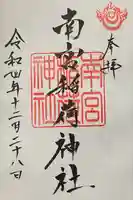 奉拝
南宮稲荷神社
南宮
神社
令和四年十二月二十八日